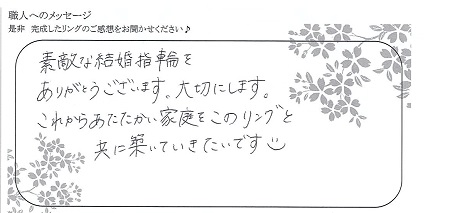 職人へのメッセージ
是非 完成したリングのご感想をお聞かせください♪
素敵な結婚指輪を
ありがとうございます。大切にします。
これからあたたかい家庭をこのリングと
共に築いていきたいです☺